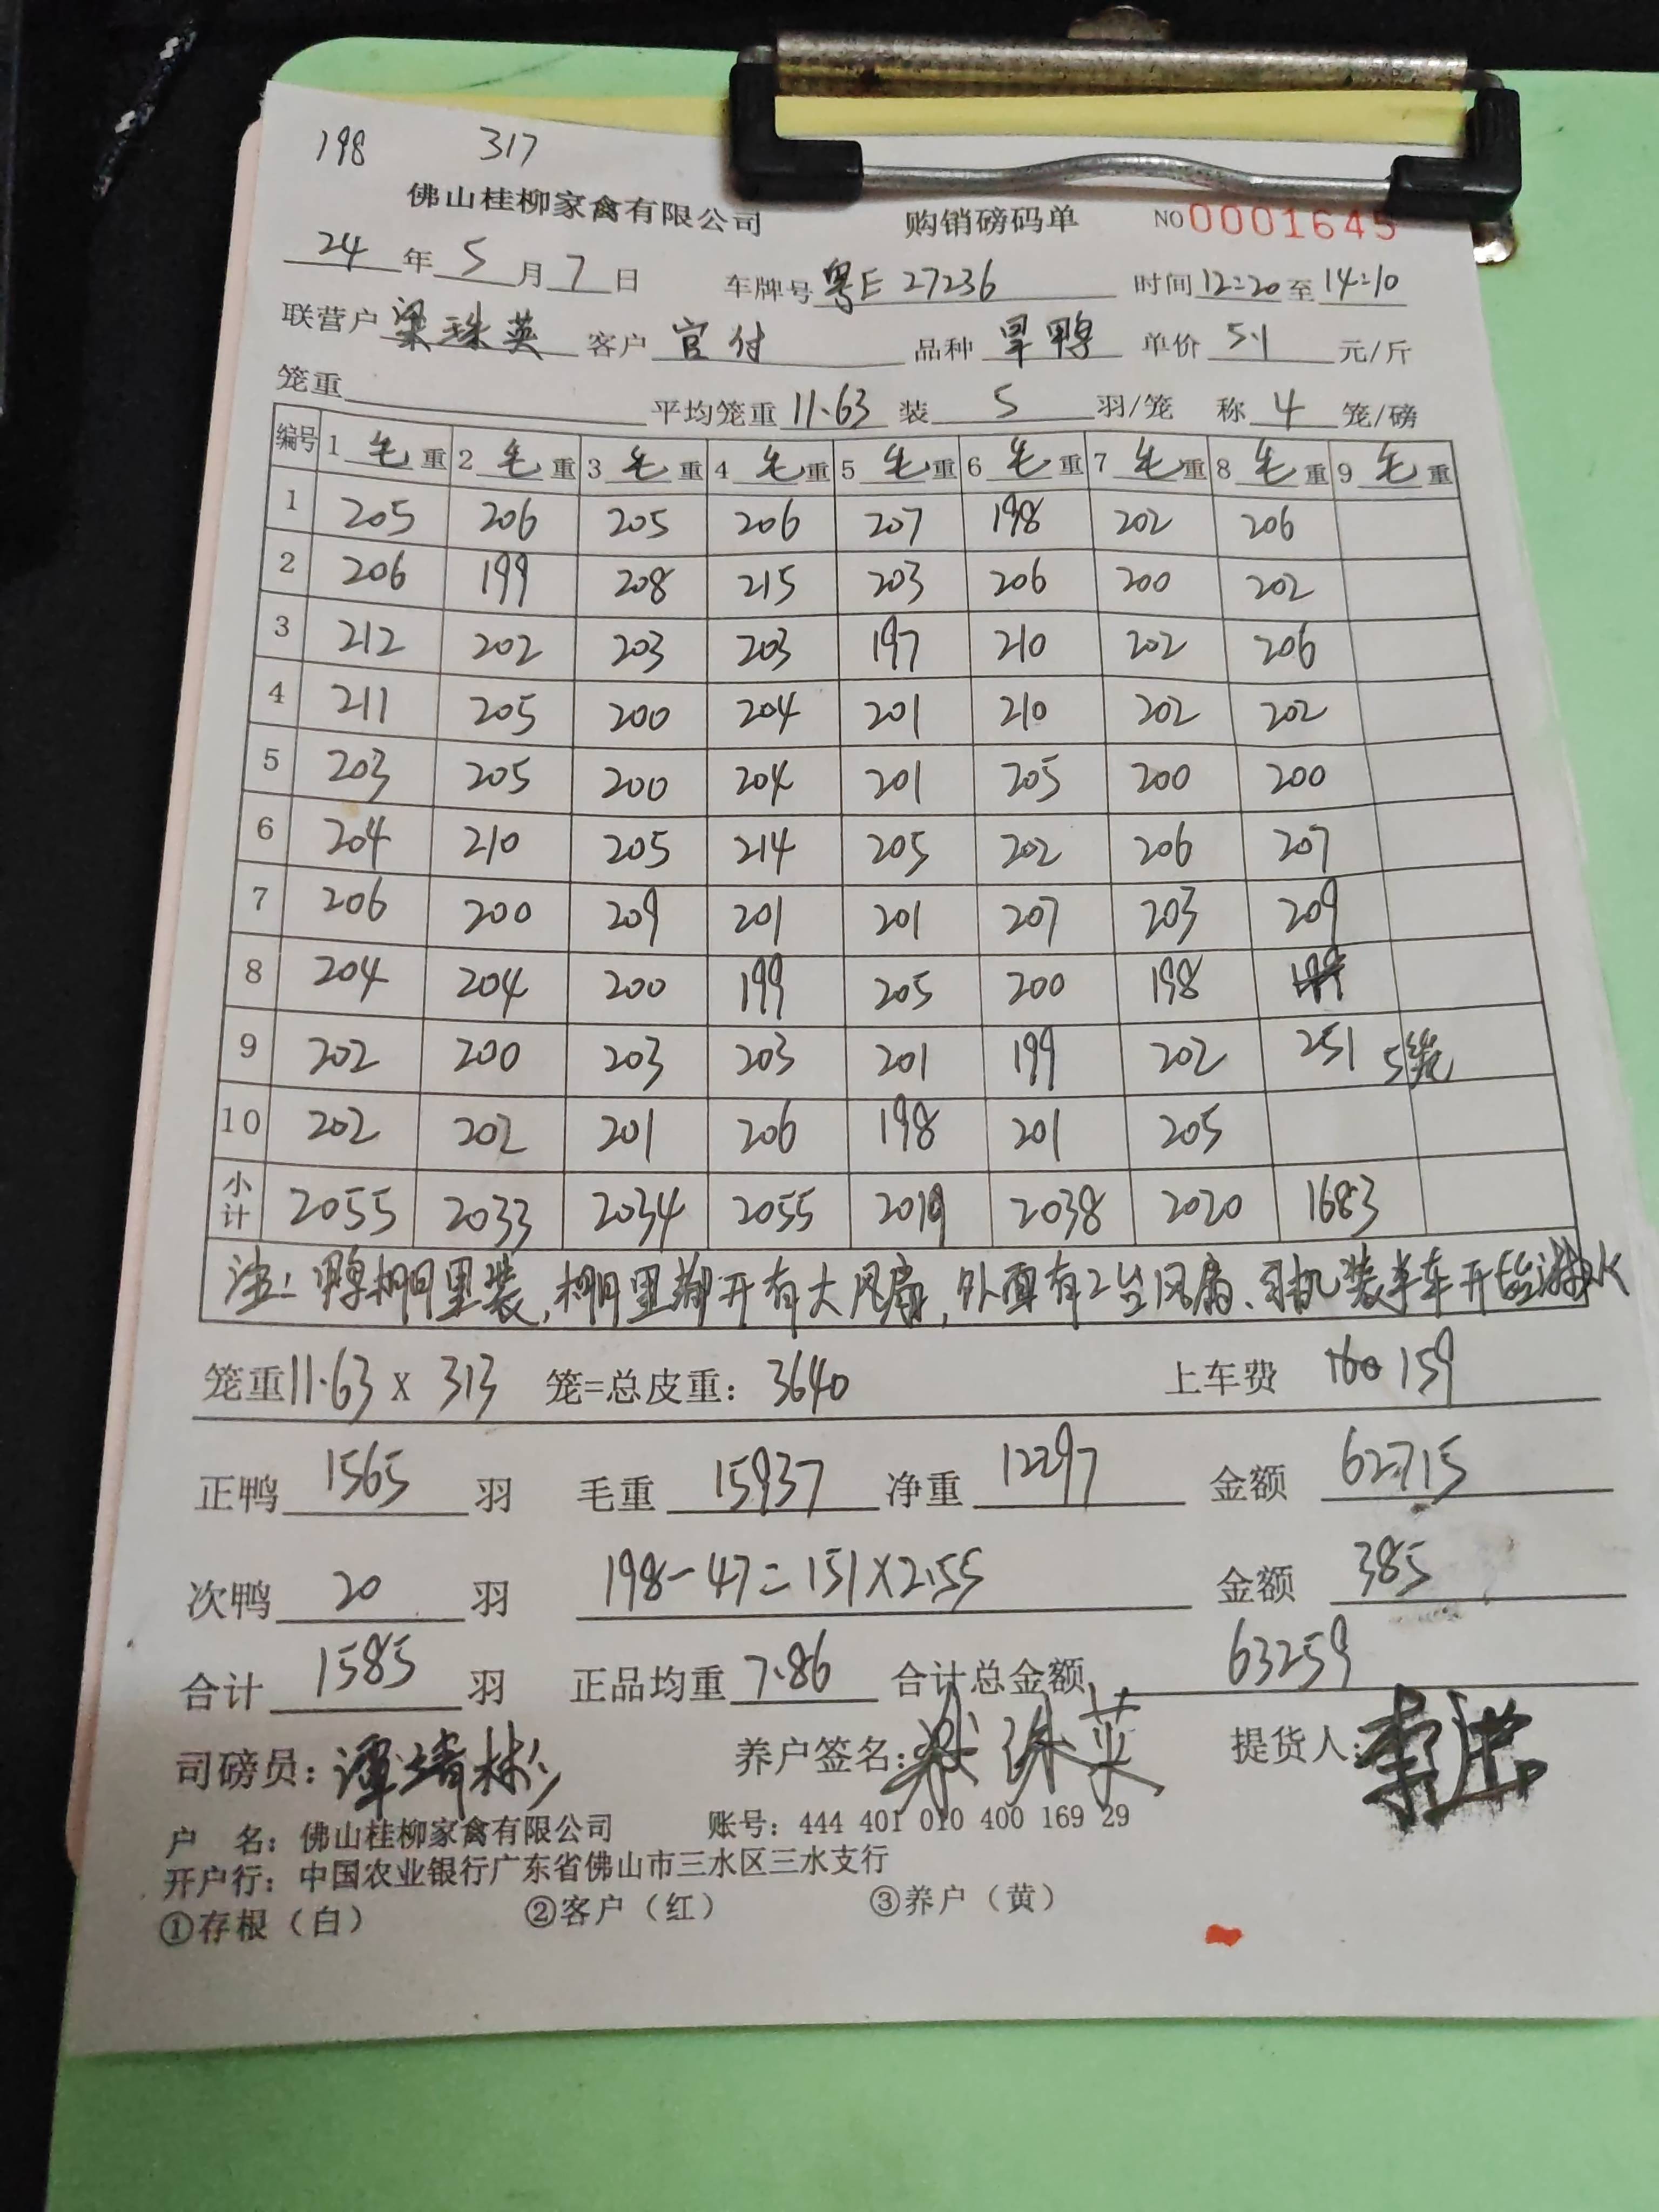 198 317
佛山桂柳家禽有限公司 购销磅码单 NO 0001645
24 年 5 月 7 日 车牌号 粤E 27236 时间 12:20 至 14:10
联营户 梁珠英 客户 官付 品种 旱鸭 单价 5.1 元/斤
笼重 平均笼重 11.63 装 5 羽/笼 称 4 笼/磅
编号 1 毛 重 2 毛 重 3 毛 重 4 毛 重 5 毛 重 6 毛 重 7 毛 重 8 毛 重 9 毛 重
1 205 206 205 206 207 198 202 206
2 206 199 208 215 203 206 200 202
3 212 202 203 203 197 210 202 206
4 211 205 200 204 201 210 202 202
5 203 205 200 204 201 205 200 200
6 204 210 205 214 205 202 206 207
7 206 200 209 201 201 207 203 209
8 204 204 200 199 205 200 198
9 202 200 203 203 201 199 202 251 5笼
10 202 202 201 206 198 201 205
小计 2055 2033 2034 2055 2019 2038 2020 1683
注: 鸭棚里装, 棚里都开有大风扇, 外面有2台风扇、司机装半车开始淋水
笼重 11.63 X 313 笼=总皮重: 3640 上车费 160 159
正鸭 1565 羽 毛重 15937 净重 12297 金额 62715
次鸭 20 羽 198-47=151×2.55 金额 385
合计 1585 羽 正品均重 7.86 合计总金额 63259
司磅员: 谭靖彬 养户签名: 梁珠英 提货人:
户 名: 佛山桂柳家禽有限公司 账号: 444 401 010 400 169 29
开户行: 中国农业银行广东省佛山市三水区三水支行
①存根（白） ②客户（红） ③养户（黄）